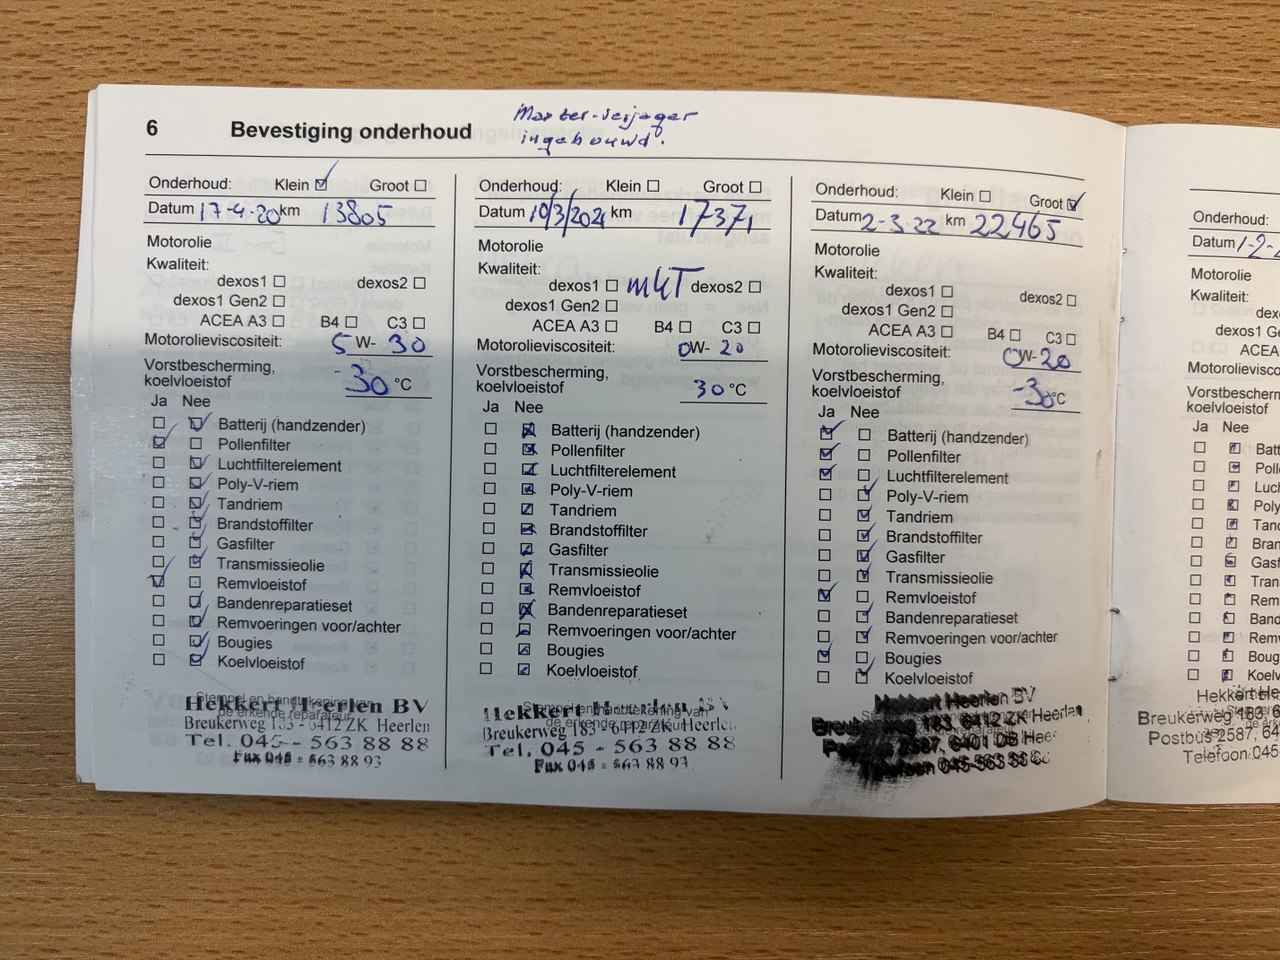 6 Bevestiging onderhoud
Marter-verjager
ingebouwd.
Onderhoud: Klein ☑ Groot ☐
Datum 17-4-20 km 13805
Motorolie
Kwaliteit:
dexos1 ☐ dexos2 ☐
dexos1 Gen2 ☐
ACEA A3 ☐ B4 ☐ C3 ☐
Motorolieviscositeit: 5 W- 30
Vorstbescherming,
koelvloeistof -30 °C
Ja Nee
☐ ☑ Batterij (handzender)
☑ ☐ Pollenfilter
☐ ☑ Luchtfilterelement
☐ ☑ Poly-V-riem
☐ ☑ Tandriem
☐ ☑ Brandstoffilter
☐ ☑ Gasfilter
☐ ☑ Transmissieolie
☑ ☐ Remvloeistof
☐ ☑ Bandenreparatieset
☐ ☑ Remvoeringen voor/achter
☐ ☑ Bougies
☐ ☑ Koelvloeistof
Stempel en handtekening van
de erkende reparateur
Hekkert Heerlen BV
Breukerweg 183 - 6412 ZK Heerlen
Tel. 045 - 563 88 88
Fax 045 - 563 88 93
Onderhoud: Klein ☐ Groot ☐
Datum 10/3/2021 km 17371
Motorolie
Kwaliteit:
dexos1 ☐ dexos2 ☐
dexos1 Gen2 ☐
ACEA A3 ☐ B4 ☐ C3 ☐
Motorolieviscositeit: 0W- 20
Vorstbescherming,
koelvloeistof 30 °C
Ja Nee
☐ ☒ Batterij (handzender)
☐ ☒ Pollenfilter
☐ ☑ Luchtfilterelement
☐ ☑ Poly-V-riem
☐ ☑ Tandriem
☐ ☒ Brandstoffilter
☐ ☑ Gasfilter
☐ ☒ Transmissieolie
☐ ☑ Remvloeistof
☐ ☒ Bandenreparatieset
☐ ☑ Remvoeringen voor/achter
☐ ☑ Bougies
☐ ☑ Koelvloeistof
Stempel en handtekening van
de erkende reparateur
Hekkert Heerlen BV
Breukerweg 183 - 6412 ZK Heerlen
Tel. 045 - 563 88 88
Fax 045 - 563 88 93
Onderhoud: Klein ☐ Groot ☑
Datum 2-3-22 km 22465
Motorolie
Kwaliteit:
dexos1 ☐ dexos2 ☐
dexos1 Gen2 ☐
ACEA A3 ☐ B4 ☐ C3 ☐
Motorolieviscositeit: 0W-20
Vorstbescherming,
koelvloeistof -30°C
Ja Nee
☑ ☐ Batterij (handzender)
☑ ☐ Pollenfilter
☑ ☐ Luchtfilterelement
☐ ☑ Poly-V-riem
☐ ☑ Tandriem
☐ ☑ Brandstoffilter
☐ ☑ Gasfilter
☐ ☑ Transmissieolie
☑ ☐ Remvloeistof
☐ ☑ Bandenreparatieset
☐ ☑ Remvoeringen voor/achter
☑ ☐ Bougies
☐ ☑ Koelvloeistof
Hekkert Heerlen BV
Breukerweg 183, 6412 ZK Heerlen
Postbus 2587, 6401 DB Heer
Telefoon 045-563 88
Onderhoud:
Datum 1-2-
Motorolie
Kwaliteit:
dexo
dexos1 G
ACEA
Motorolieviscos
Vorstbescherm
koelvloeistof
Ja Nee
☐ ☑ Batt
☐ ☑ Polle
☐ ☑ Luch
☐ ☑ Poly
☐ ☑ Tand
☐ ☑ Bran
☐ ☑ Gasf
☐ ☑ Tran
☐ ☑ Rem
☐ ☑ Band
☐ ☑ Rem
☐ ☑ Boug
☐ ☑ Koelv
Hekkert He
Breukerweg 183, 6
Postbus 2587, 64
Telefoon 045